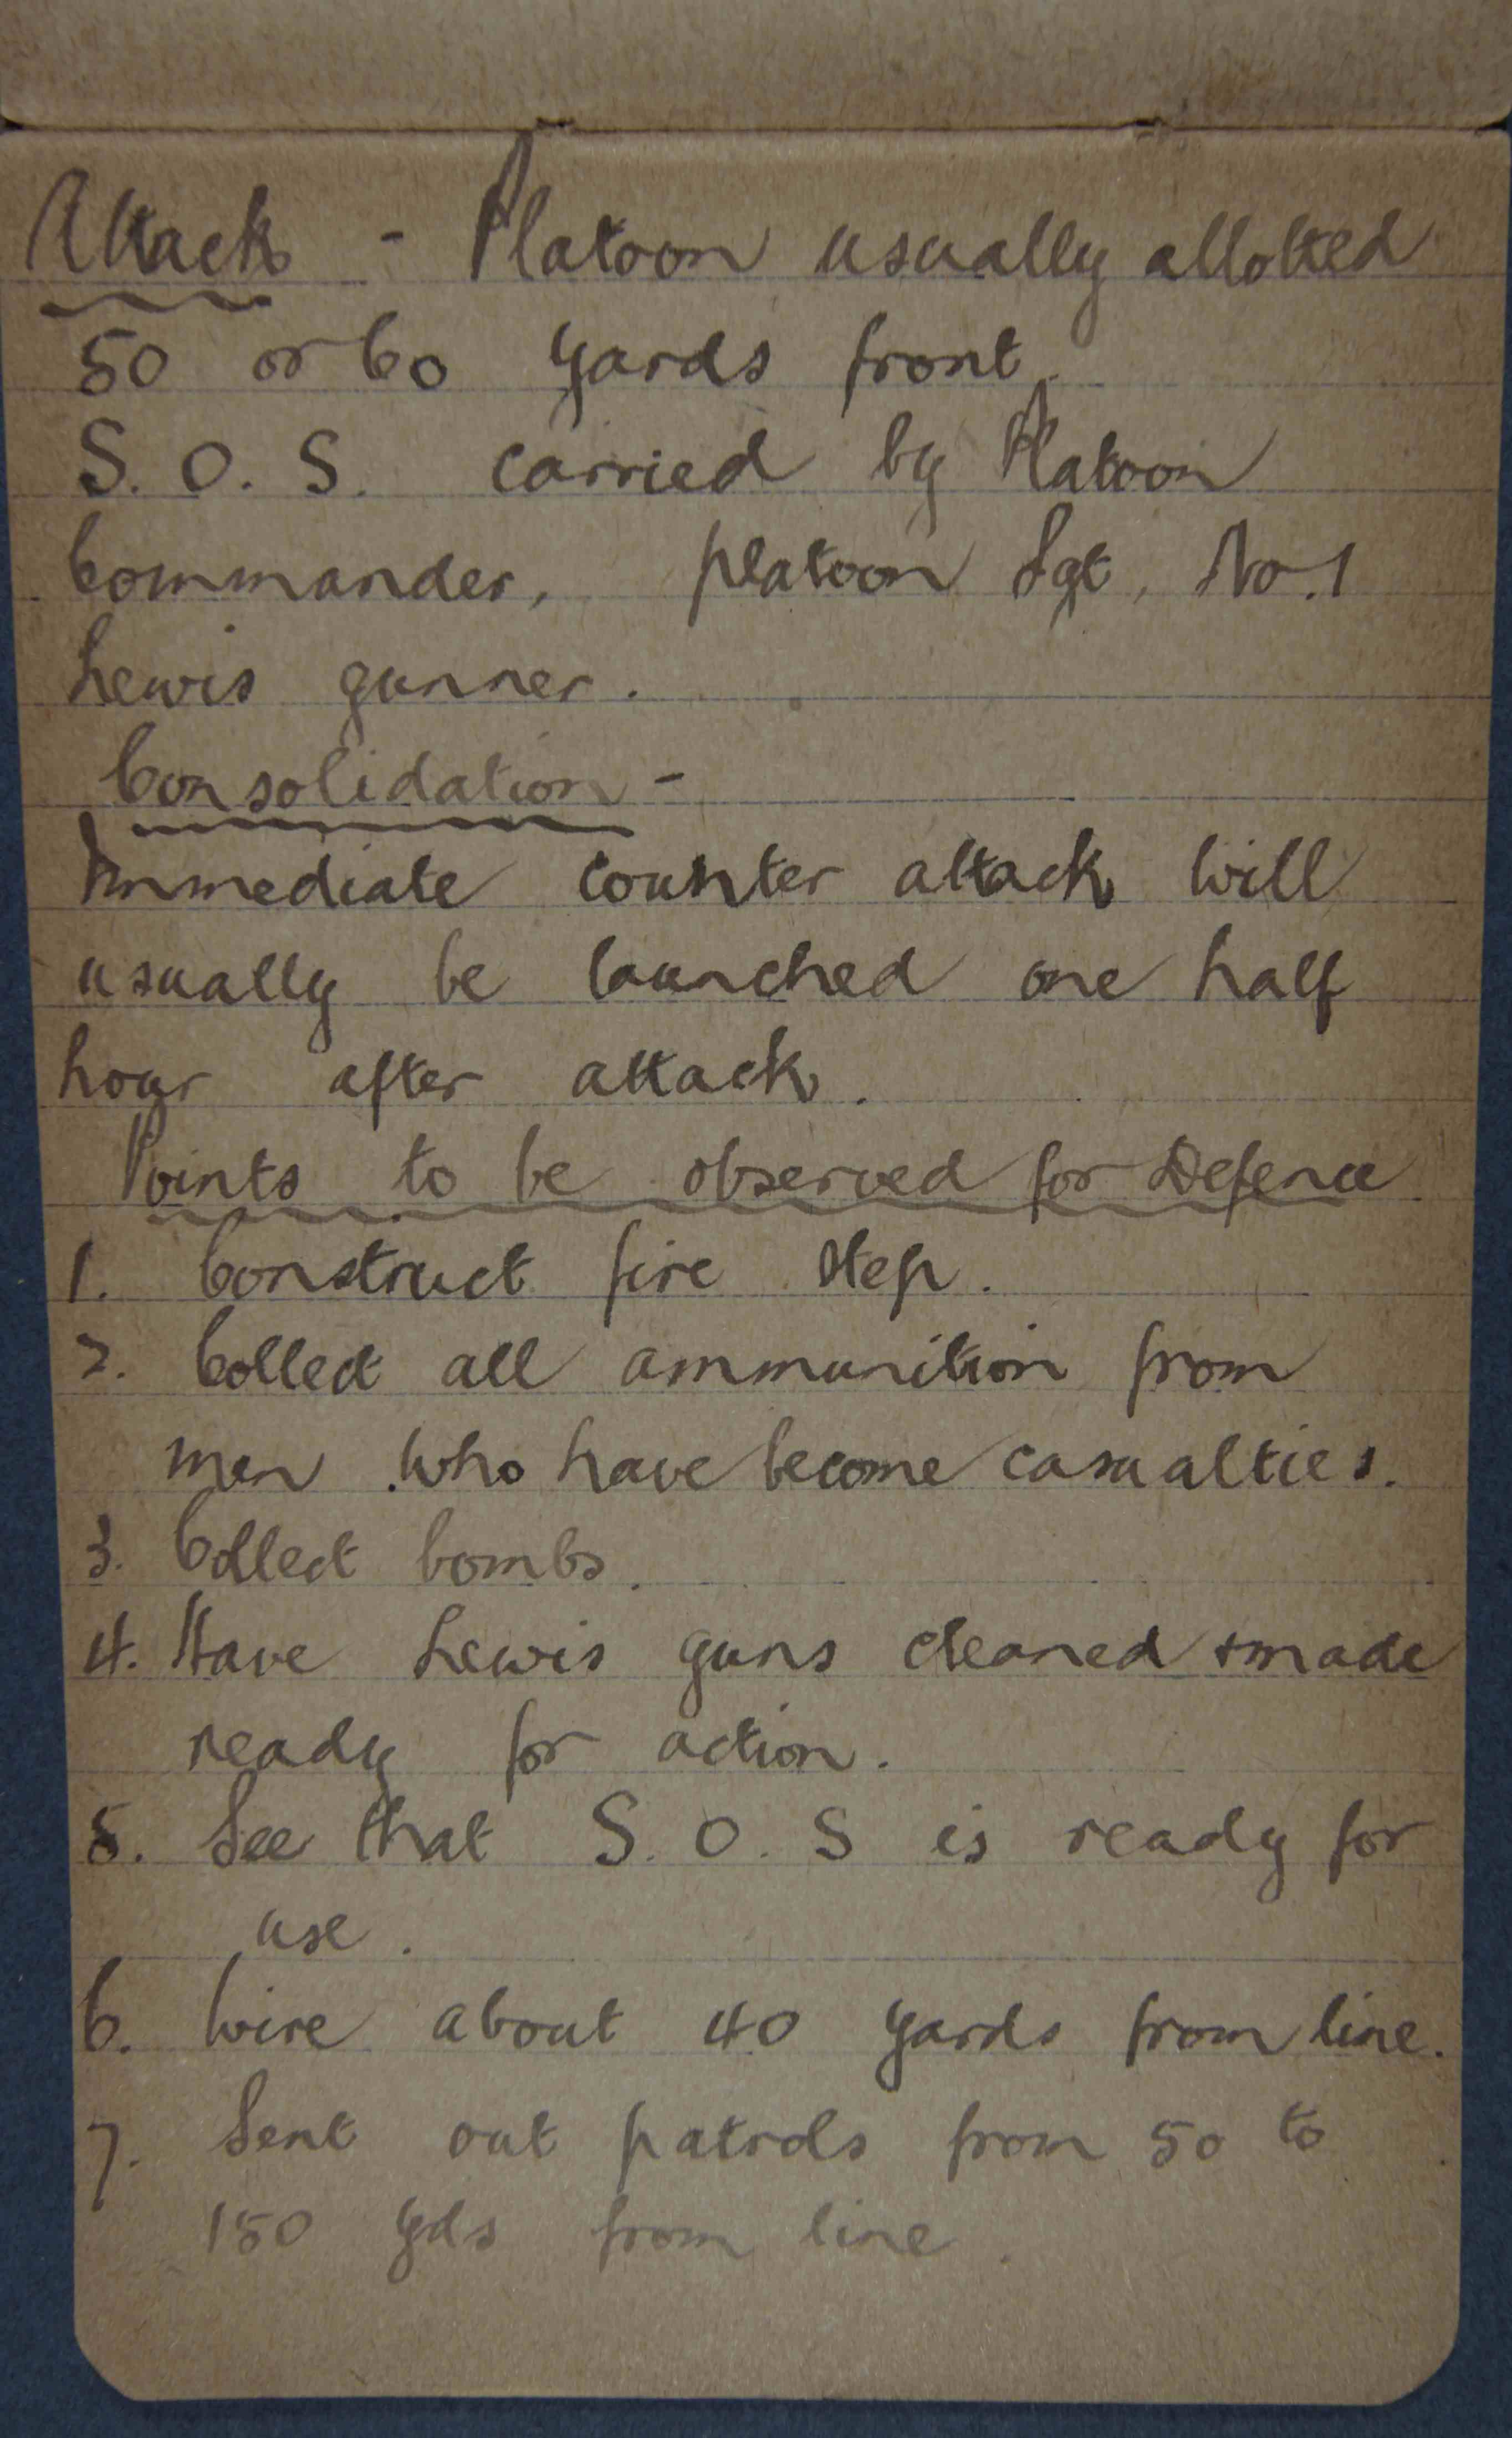 Attack - Platoon usually allotted
50 or 60 yards front.
S. O. S. carried by Platoon
Commander, platoon Sgt, No. 1
Lewis gunner.
Consolidation -
Immediate counter attack will
usually be launched one half
hour after attack.
Points to be observed for Defence
1. Construct fire step.
2. Collect all ammunition from
men who have become casualties.
3. Collect bombs.
4. Have Lewis guns cleaned + made
ready for action.
5. See that S. O. S is ready for
use.
6. Wire about 40 yards from line.
7. Sent out patrols from 50 to
150 yds from line.